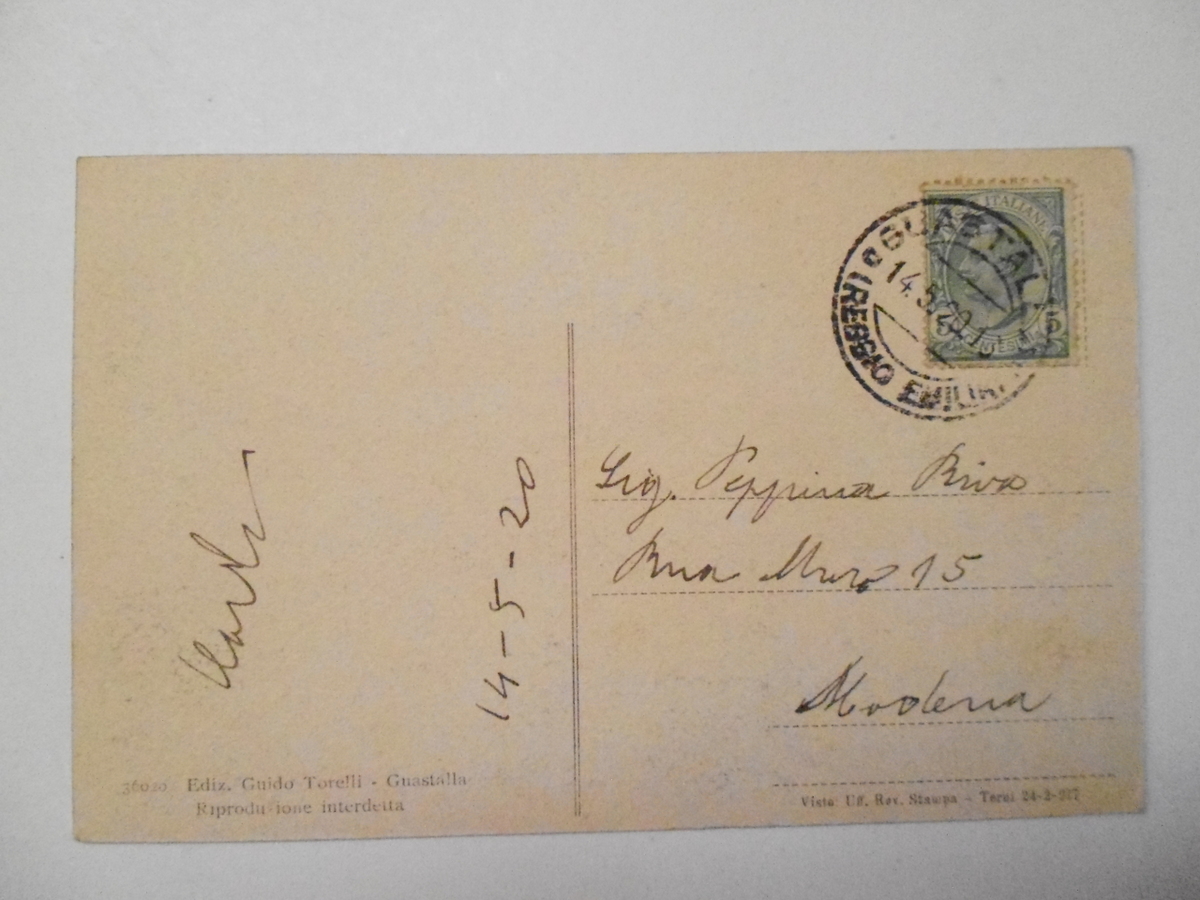 POSTE ITALIANE
GUASTALLA
14.5.20
(REGGIO EMILIA)
CENTESIMI 5
Sig. Peppina Riva
Rua Muro 15
Modena
14-5-20
Ediz. Guido Torelli - Guastalla
Riproduzione interdetta
Visto Uff. Rev. Stampa - Terni 24-2-917